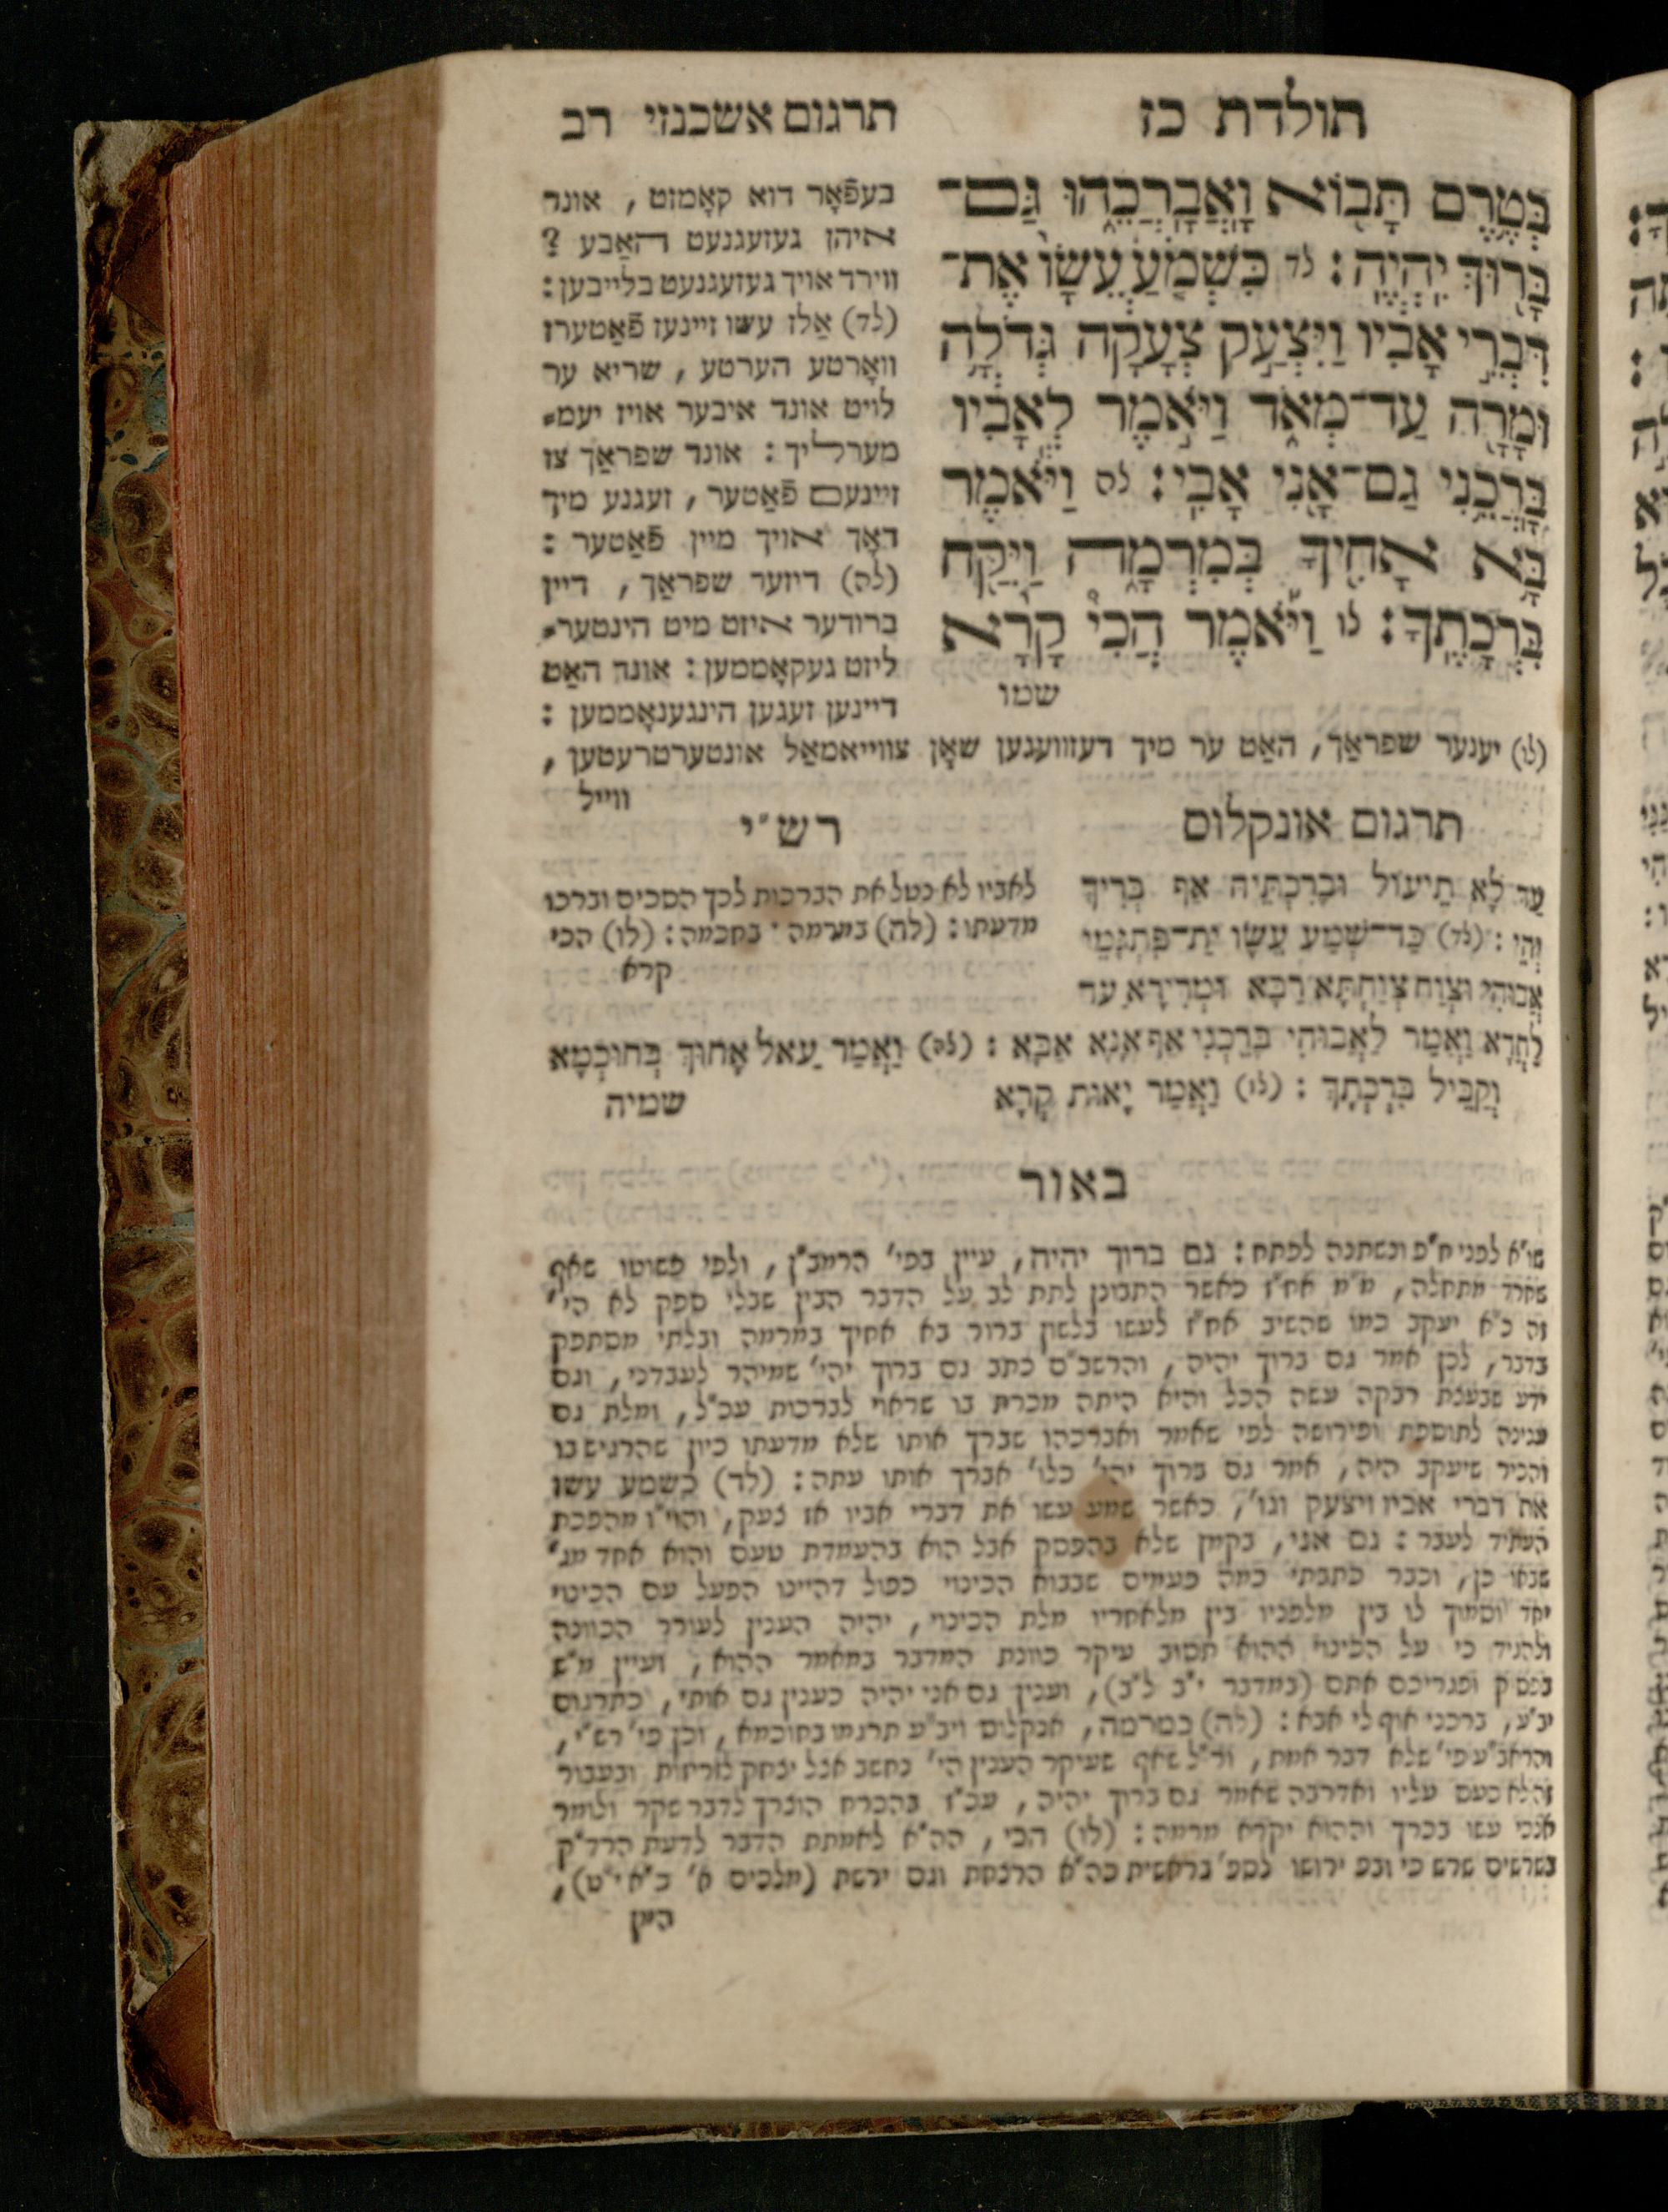 תולדת כז
תרגום אשכנזי רב
בְּטֶרֶם תָּבוֹא וָאֲבָרֲכֵהוּ גַּם־
בָּרוּךְ יִהְיֶה : לד כִּשְׁמֹעַ עֵשָׂו אֶת־
דִּבְרֵי אָבִיו וַיִּצְעַק צְעָקָה גְּדֹלָה
וּמָרָה עַד־מְאֹד וַיֹּאמֶר לְאָבִיו
בָּרֲכֵנִי גַם־אָנִי אָבִי : לה וַיֹּאמֶר
בָּא אָחִיךָ בְּמִרְמָה וַיִּקַּח
בִּרְכָתֶךָ : לו וַיֹּאמֶר הֲכִי קָרָא
שמו
בעפֿאָר דוא קאָמזט , אונד
איהן געזעגנעט האַבע ?
ווירד אויך געזעגנעט בלייבען :
(לד) אַלז עשו זיינעז פֿאַטערז
וואָרטע הערטע , שריא ער
לויט אונד איבער אויז יעמ⸗
מערליך : אונד שפראַך צו
זיינעם פֿאַטער , זעגנע מיך
דאָך אויך מיין פֿאַטער :
(לה) דיזער שפראַך , דיין
ברודער איזט מיט הינטער⸗
ליזט געקאָממען : אונד האַט
דיינען זעגען הינגענאָממען :
(לו) יענער שפראַך, האַט ער מיך דעזוועגען שאָן צווייאמאַל אונטערטרעטען ,
ווייל
תרגום אונקלוס
עַד לָא תֵיעוֹל וּבָרִכְתֵּיהּ אַף בְּרִיךְ
יְהֵי : (לד) כַּד־שְׁמַע עֵשָׂו יַת־פִּתְגָּמֵי
אֲבוּהִי וּצְוַח צְוַחְתָּא רַבָּא וּמְרִירָא עַד
לַחֲדָא וַאֲמַר לַאֲבוּהִי בָּרֵכְנִי אַף אֲנָא אַבָּא : (לה) וַאֲמַר עַאל אֲחוּךְ בְּחוּכְמָא
וְקַבֵּיל בִּרְכְּתָךְ : (לו) וַאֲמַר יָאוּת קְרָא
שמיה
רש״י
לאביו לא נטל את הברכות לכך הסכים וברכו
מדעתו : (לה) במרמה · בחכמה : (לו) הכי
קרא
באור
שו״א לפני ח״פ ונשתנה לפתח : גם ברוך יהיה, עיין בפי׳ הרמב״ן , ולפי פשוטו שאף
שחרד מתחלה, מ״מ אח״ז כאשר התבונן לתת לב על הדבר הבין שבלי ספק לא הי׳
זה כ״א יעקב כמו שהשיב אח״ז לעשו בלשון ברור בא אחיך במרמה ובלתי מסתפק
בדבר, לכן אמר גם ברוך יהיה , והרשב״ם כתב גם ברוך יהי׳ שמיהר לעבדני , וגם
ידע שבעצת רבקה עשה הכל והיא היתה מכרת בו שראוי לברכות עכ״ל, ומלת גם
ענינה לתוספת ופירושה לפי שאמר ואברכהו שברך אותו שלא מדעתו כיון שהרגיש בו
והכיר שיעקב היה, אמר גם ברוך יהי׳ כלו׳ אברך אותו עתה : (לד) כשמע עשו
את דברי אביו ויצעק וגו׳, כאשר שמע עשו את דברי אביו אז צעק, והוי״ו מהפכת
העתיד לעבר : גם אני, בקמץ שלא בהפסק אבל הוא בהעמדת טעם והוא אחד מג׳
שבאו כן, וכבר כתבתי כמה פעמים שבבוא הכינוי כפול דהיינו הפעל עם הכינוי
יחד וסמוך לו בין מלפניו בין מלאחריו מלת הכינוי, יהיה הענין לעורר הכוונה
ולהגיד כי על הכינוי ההוא תסוב עיקר כוונת המדבר במאמר ההוא, ועיין מ״ש
בפסוק ופגריכם אתם (במדבר י״ד ל״ב), וענין גם אני יהיה כענין גם אותי, כתרגום
יב״ע, ברכני אוף לי אבא : (לה) במרמה, אנקלוס ויב״ע תרגמו בחוכמא, וכן פי׳ רש״י,
והראב״ע פי׳ שלא דבר אמת, ור״ל שאף שעיקר הענין הי׳ נחשב אצל יצחק לזריזות ובעבור
זה לא כעס עליו ואדרבה שאמר גם ברוך יהיה, עכ״ז בהכרח הוצרך לדבר שקר ולומר
אנכי עשו בכרך וההוא יקרא מרמה : (לו) הכי , הה״א לאמתת הדבר לדעת הרד״ק
בשרשים שרש כי
הרצחת וגם ירשת (מלכים א׳ כ״א י״ט),